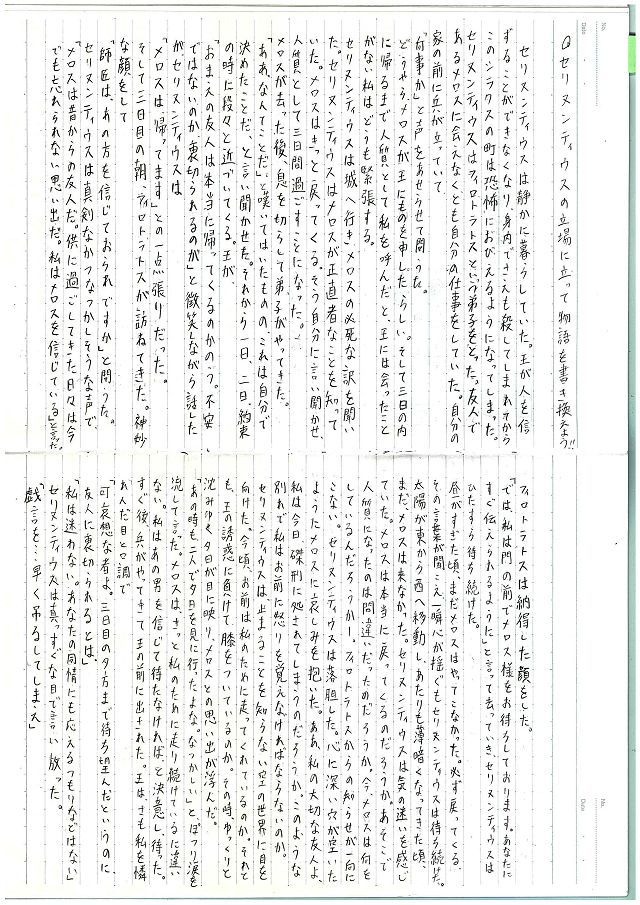 Qセリヌンティウスの立場に立って物語を書き換えよう!!
セリヌンティウスは静かに暮らしていた。王が人を信
ずることができなくなり身内でさえも殺してしまわれてから
このシラクスの町は恐怖におびえるようになってしまった。
セリヌンティウスはフィロトラトスという弟子をとった。友人で
あるメロスに会えなくとも自分の仕事をしていた。自分の
家の前に兵が立っていて、
「何事か」と声をあせらせて問うた。
どうやら、メロスが王にものを申したらしい。そして三日の内
に帰るまで人質として私を呼んだと、王には会ったこと
がない私はどうも緊張する。
セリヌンティウスは城へ行きメロスの必死な訳を聞い
た。セリヌンティウスはメロスが正直者なことを知って
いた。メロスはきっと戻ってくる。そう自分に言い聞かせ、
人質として三日間過ごすことになった。
メロスが去った後、息を切らして弟子がやってきた。
「ああ、なんてことだ」と嘆いてはいたものの、これは自分で
決めたことだ、と言い聞かせた。それから一日、二日、約束
の時に段々と近づいてくる。王が、
「おまえの友人は本当に帰ってくるのかのう。不安
ではないのか裏切られるのが」と微笑しながら話した
がセリヌンティウスは
「メロスは帰ってます」との一点張りだった。
そして三日目の朝、フィロトラトスが訪ねてきた。神妙
な顔をして
「師匠は、あの方を信じておられですか」と問うた。
セリヌンティウスは真剣なかつなつかしそうな声で、
「メロスは昔からの友人だ。供に過ごしてきた日々は今
でも忘れられない思い出だ。私はメロスを信じている」と言った。
フィロトラトスは納得した顔をした。
「では、私は門の前でメロス様をお待ちしております。あなたに
すぐ伝えられるように」と言って去っていき、セリヌンティウスは
ひたすら待ち続けた。
昼がすぎた頃、まだメロスはやてこなかった。必ず戻ってくる、
その言葉が聞こえ一瞬心が揺ぐもセリヌンティウスは待ち続けた。
太陽が東から西へ移動し、あたりも薄暗くなってきた頃、
まだ、メロスは来なかった。セリヌンティウスは気の迷いを感じ
ていた。メロスは本当に戻ってくるのだろうか。あそこで
人質になったのは間違いだったのだろうか。今、メロスは何を
しているんだろうかー。フィロトラトスからの知らせが一向に
こない。セリヌンティウスは落胆した。心に深い穴が空いた
ようにメロスに哀しみを抱いた。ああ、私の大切な友人よ、
私は今日磔刑に処されてしまうのだろうか。このような
別れで私はお前に怒りを覚えなければならないのか。
セリヌンティウスは止まることを知らない空の世界に目を
向けた。今頃、お前は私のために走ってくれているのか。それと
も、王の誘惑に負けて膝をついているのか。その時ゆっくりと
沈みゆく夕日が目に映り、メロスとの思い出が浮んだ。
「あの時も二人で夕日を見に行ったよな。なつかしい」と、ぽつり涙を
流して言った。メロスは、きっと私のために走り続けているに違い
ない。私はあの男を信じて待たなければ、と決意し、待った。
すぐ後、兵がやってきて王の前に出された。王はさも私を憐
れんだ目と口調で
「可哀想な者よ。三日目の夕方まで待ち望んだというのに、
友人に裏切られるとは」
「私は迷わない。あなたの同情にも応えるつもりなどはない」
セリヌンティウスは真っすぐな目で言い放った。
「戯言を…早く吊るしてしまえ」
No.
Date
No.
Date